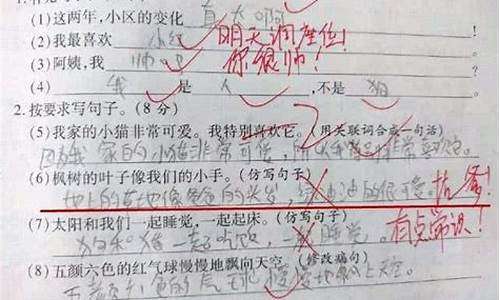 (1)这两年,小区的变化 真大啊
(2)我最喜欢 小红 明天调座位!
(3)阿姨,我 帅吗 你很帅!
(4) 我 是 人 ,不是 狗
2.按要求写句子。(8分)
(5)我家的小猫非常可爱。我特别喜欢它。(用关联词合成一句话)
因为我家的小猫非常可爱,所以我非常喜欢它。
(6)枫树的叶子像我们的小手。(仿写句子)
地上的草地像爸爸的头发,绿油油的很可爱。找爹!
(7)太阳和我们一起睡觉,一起起床。(仿写句子)
狗和猪一起吃饭,一起睡觉。有点常识!
(8)五颜六色的红气球慢慢地飘向天空。(修改病句)
五颜六色的气球慢慢地飘上天空。